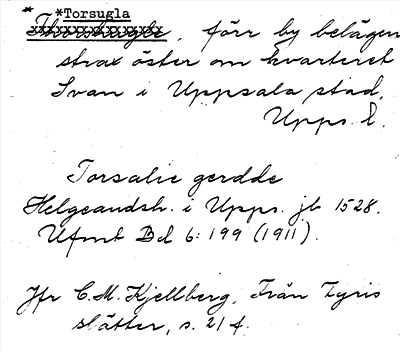 *Torsugla
*
, förr by belägen
strax öster om kvarteret
Ivan i Uppsala stad,
Upps. l.
Torsalie gerdde
Helgeandsh. i Upps. jb 1528.
Ufmt Bd 6: 199 (1911).
Jfr C.M. Kjellberg, Från Fyris
slätter, s. 21 f.